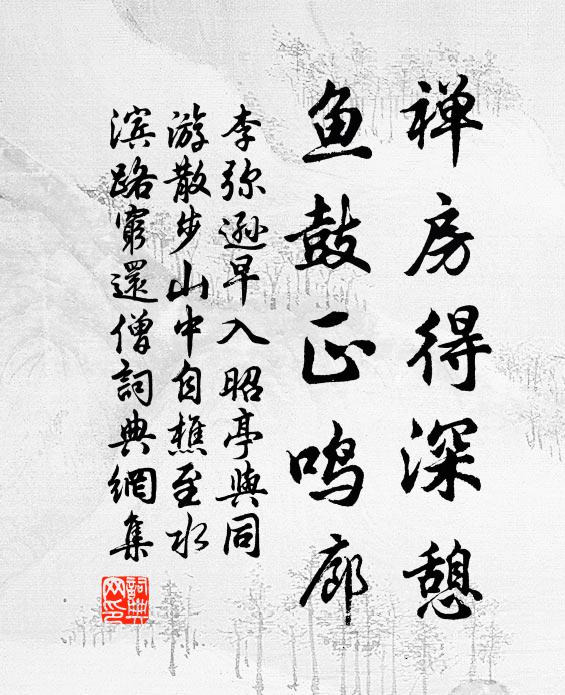 禅房得深憩
鱼鼓正鸣廊
李弥逊早入昭亭与同
游散步山中自樵至水
滨路穷還僧詞典網集